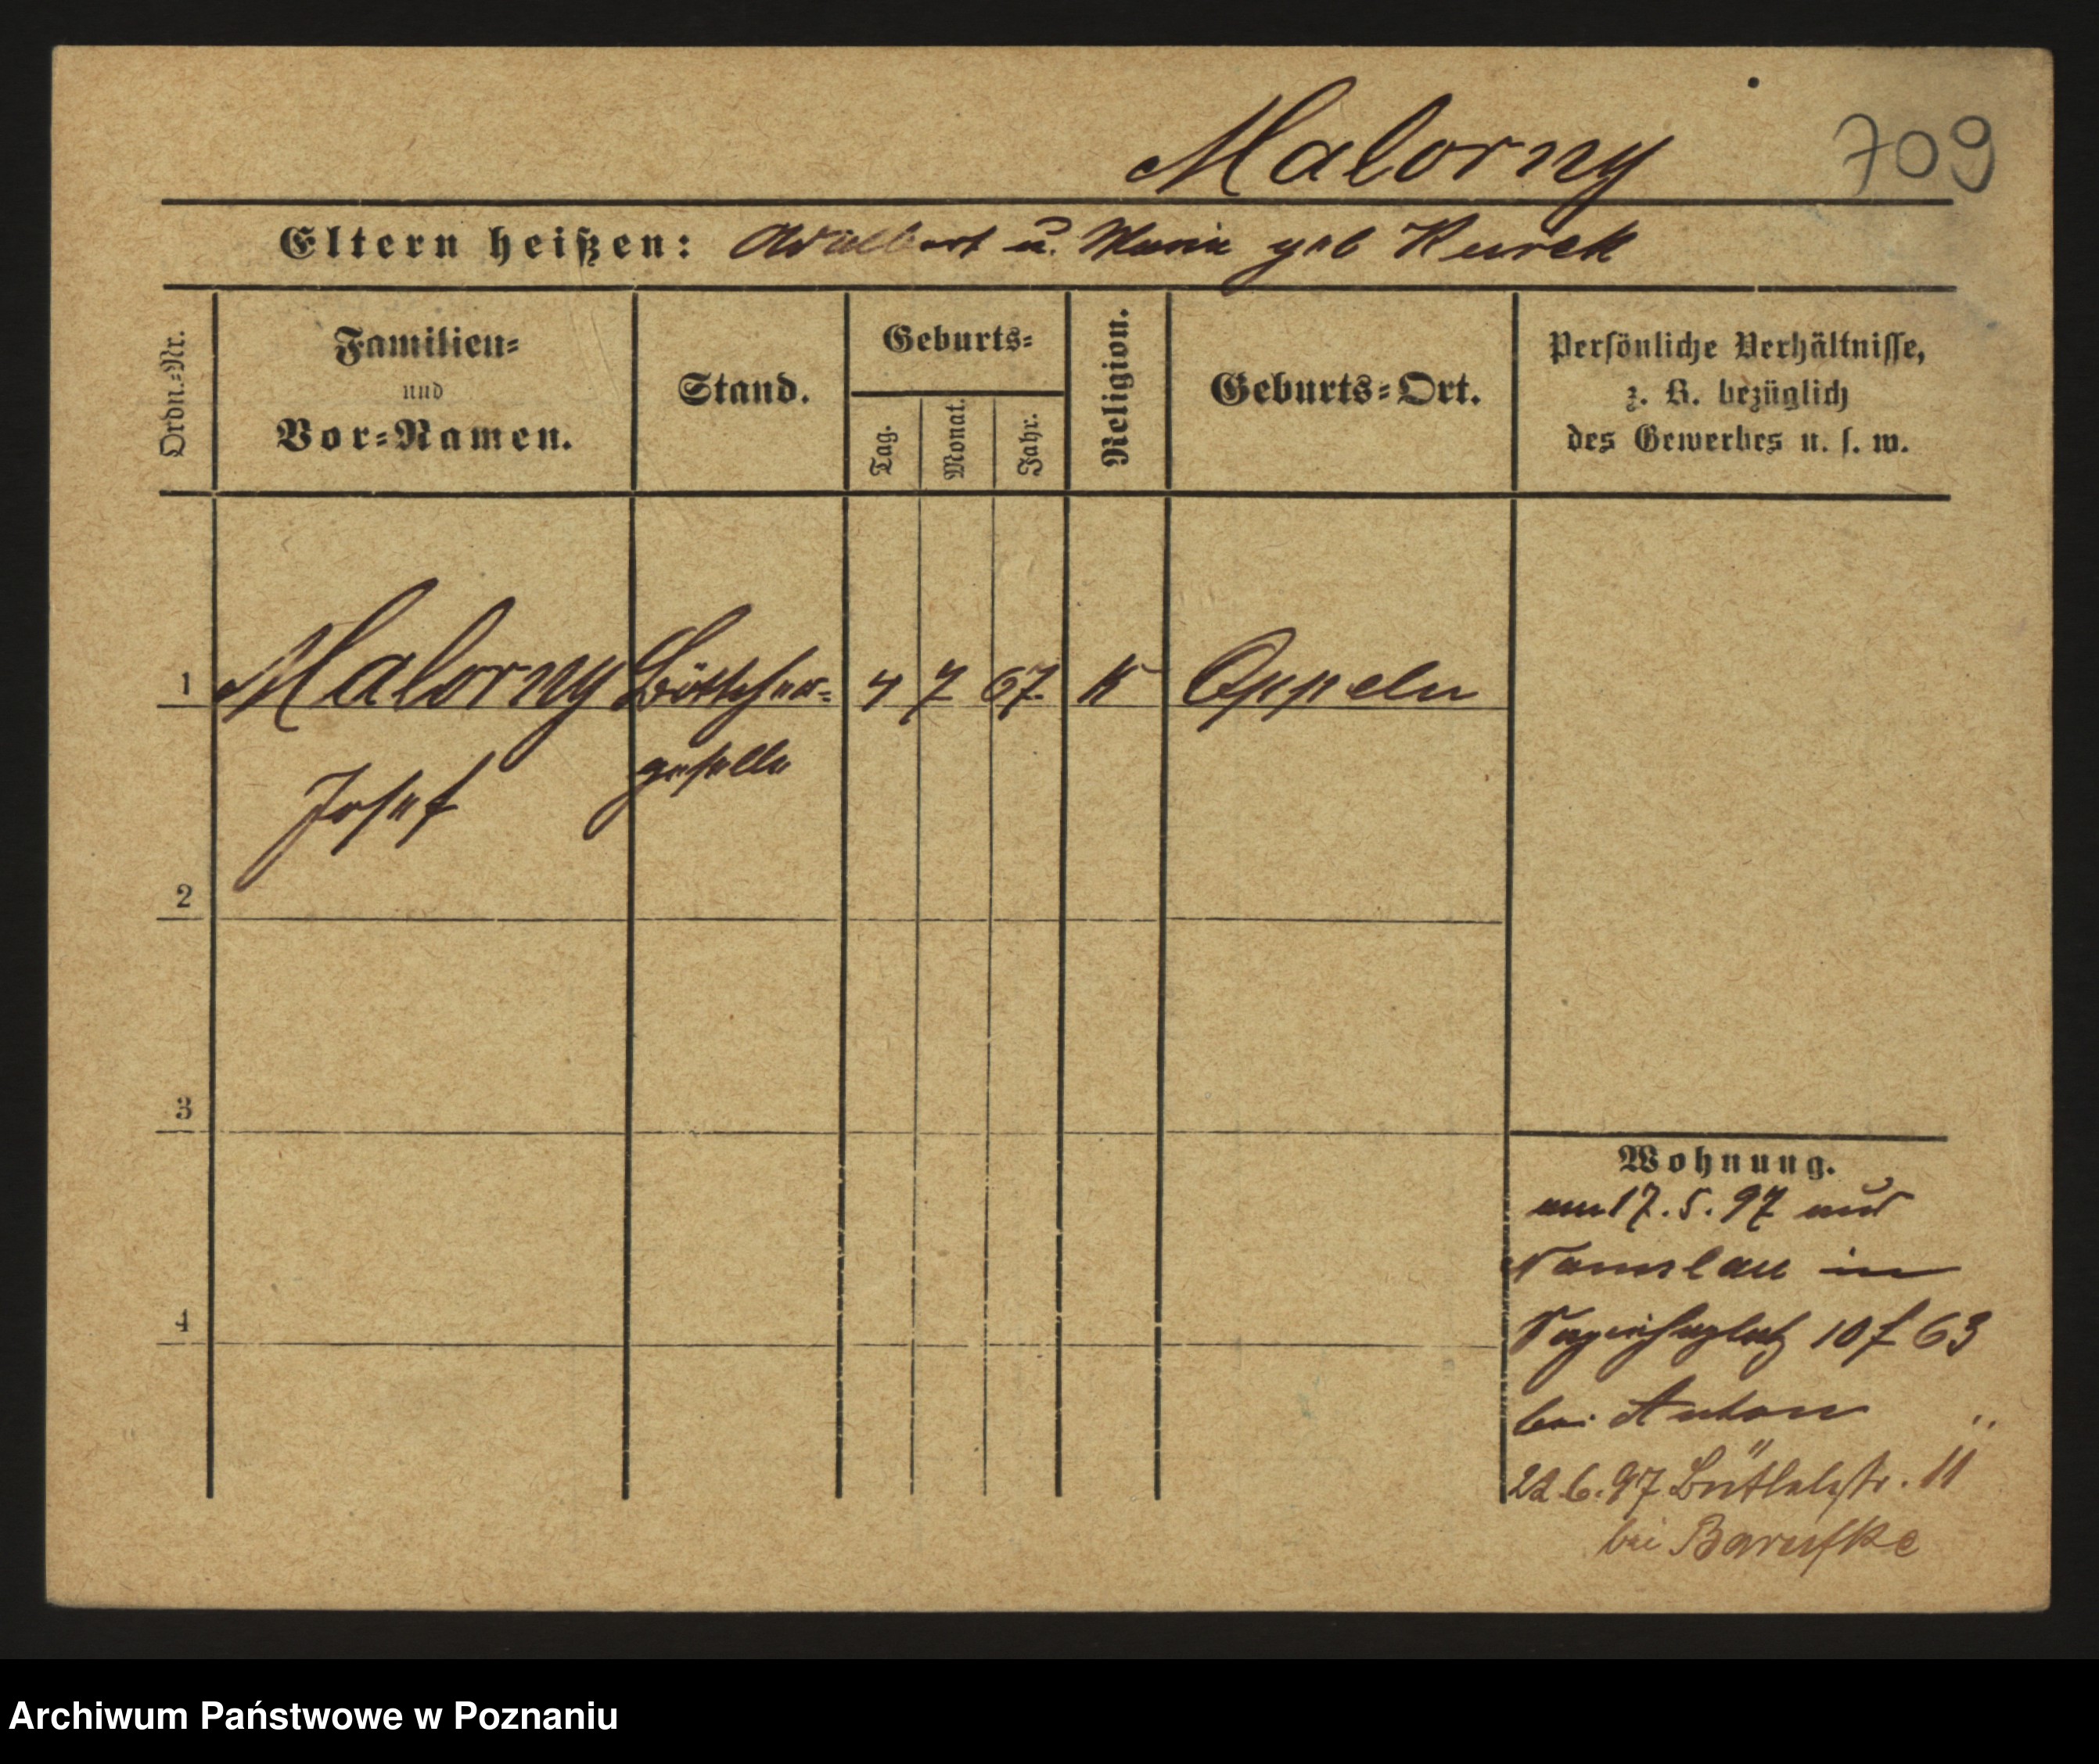 Malorny 709
Eltern heißen: Adalbert u. Maria geb Kurek
Ordn.-Nr.
Familien-
und
Vor-Namen.
Stand.
Geburts-
Tag.
Monat.
Jahr.
Religion.
Geburts-Ort.
Persönliche Verhältnisse,
z. B. bezüglich
des Gewerbes u. s. w.
1 Malorny Böttcher- 4 7 67. K Oppeln
Josef geselle
2
3
4
Wohnung.
am 17.5.97 aus
Namslau in
10 f 63
bei Anton
22.6.97 11
bei Barufke
Archiwum Państwowe w Poznaniu